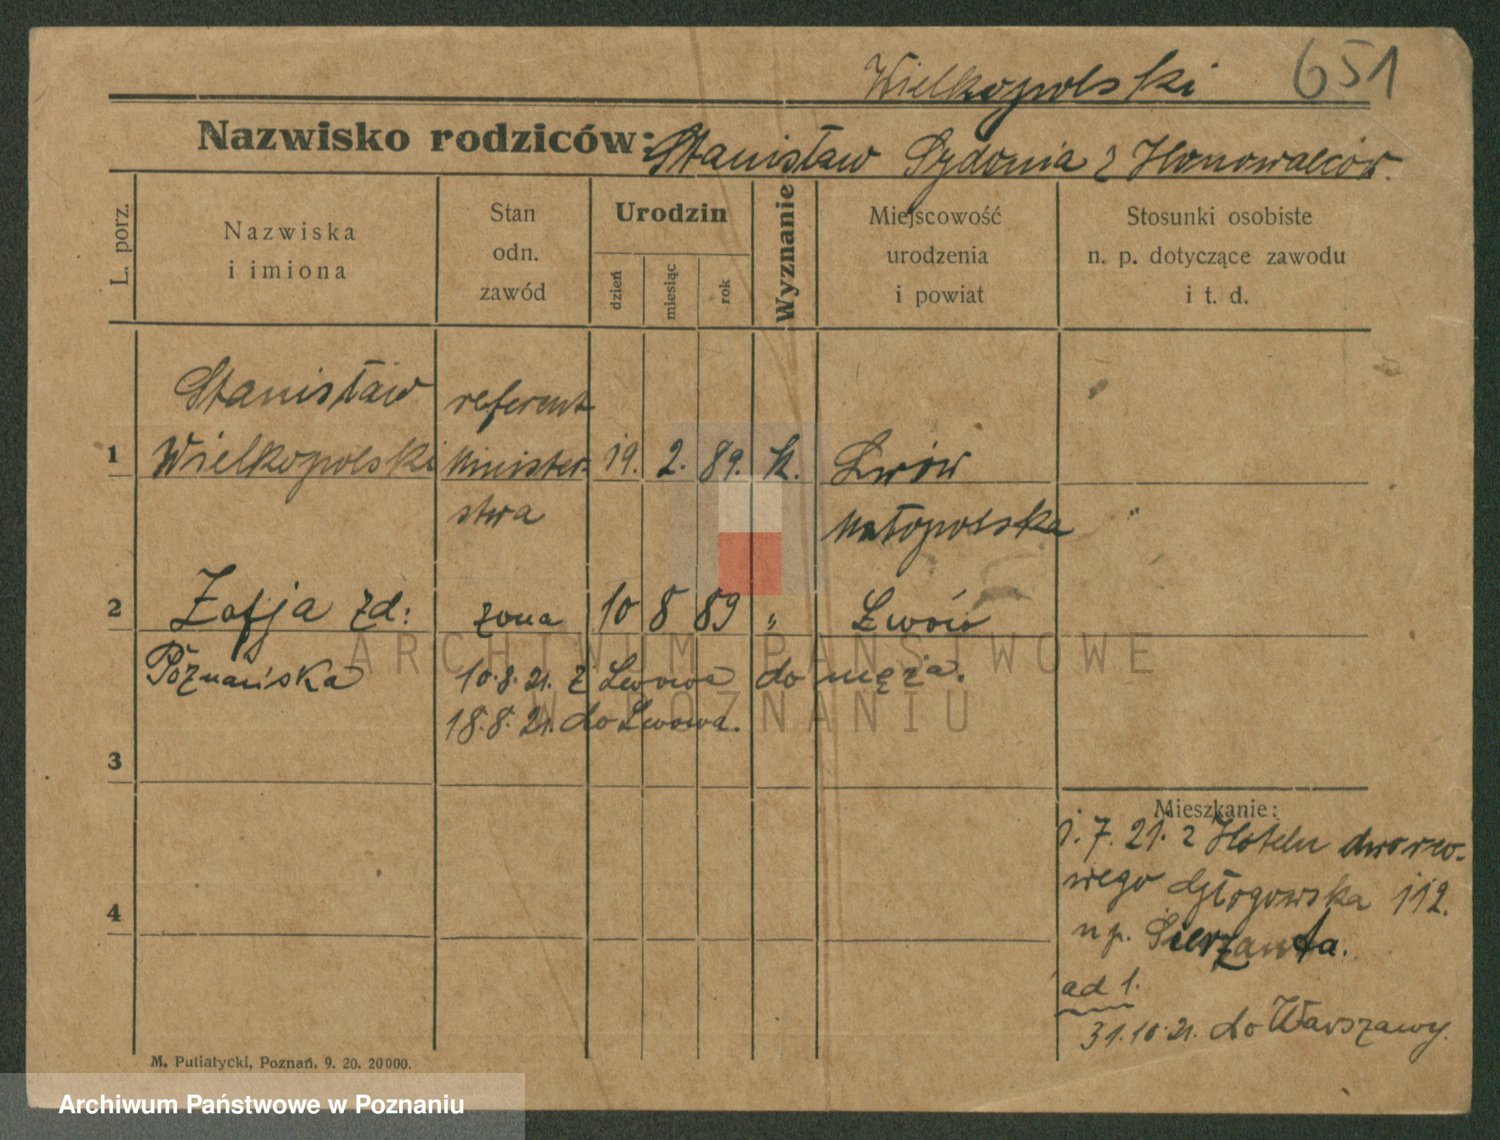 Wielkopolski 651
Nazwisko rodziców: Stanisław Sydonia z
L. porz.
Nazwiska
i imiona
Stan
odn.
zawód
Urodzin
dzień
miesiąc
rok
Wyznanie
Miejscowość
urodzenia
i powiat
Stosunki osobiste
n. p. dotyczące zawodu
i t. d.
Stanisław referent
1 Wielkopolski Minister- 19. 2. 89. k. Lwów
stwa Małopolska "
2 Zofja zd: żona 10 8 89 " Lwów
Poznańska 10.8.21. z Lwowa do męża.
18.8.21. do Lwowa.
3
Mieszkanie:
1.7.21. z Hotelu dworco-
4 wego 112.
u p. Sierżanta.
ad 1.
31.10.21. do Warszawy.
M. Putiatycki, Poznań. 9. 20. 20000.
ARCHIWUM PAŃSTWOWE
W POZNANIU
Archiwum Państwowe w Poznaniu